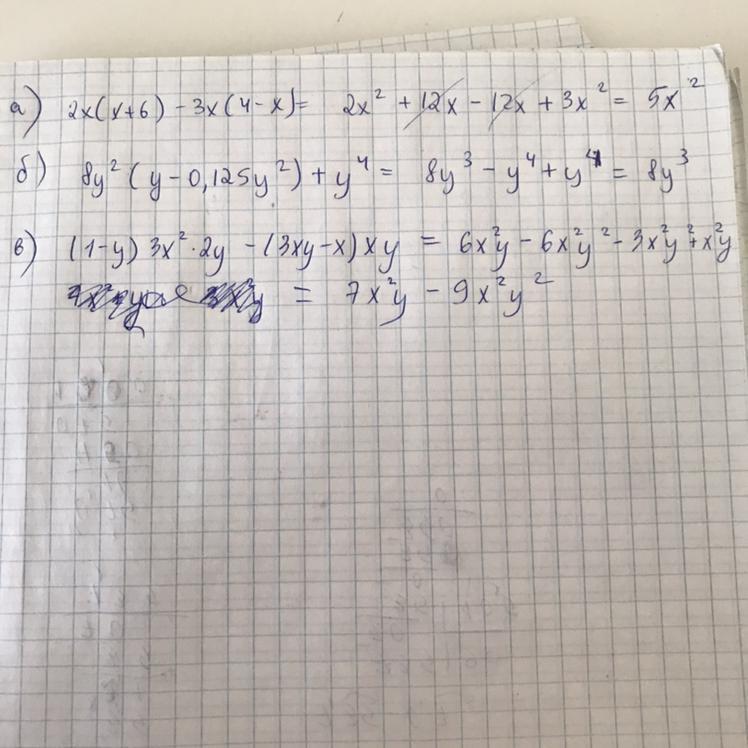 а) 2x(x+6) - 3x(4-x) = 2x² + 12x - 12x + 3x² = 5x²
б) 8y²(y - 0,125y²) + y⁴ = 8y³ - y⁴ + y⁴ = 8y³
в) (1-y) 3x² · 2y - (3xy - x) xy = 6x²y - 6x²y² - 3x²y² + x²y
= 7x²y - 9x²y²